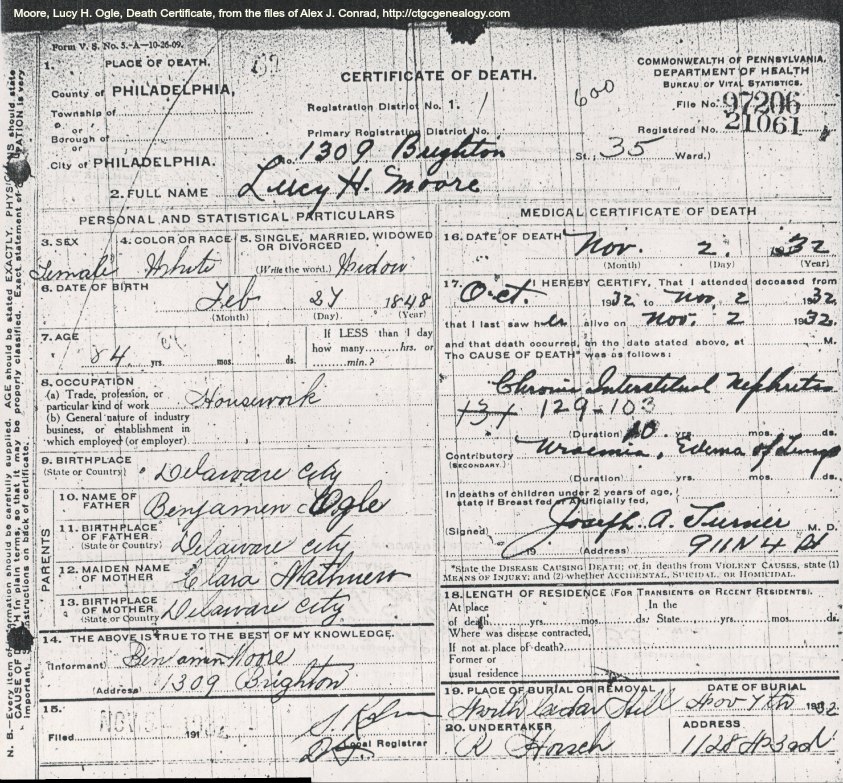 Moore, Lucy H. Ogle, Death Certificate, from the files of Alex J. Conrad, http://ctgcgenealogy.com
Form V. S. No. 5.-A-10-26-09.
1. PLACE OF DEATH.
County of PHILADELPHIA,
Township of
or
Borough of
or
City of PHILADELPHIA.
CERTIFICATE OF DEATH.
Registration District No. 1.
Primary Registration District No.
No. 1309 Brighton St.; 35 Ward.)
600
COMMONWEALTH OF PENNSYLVANIA.
DEPARTMENT OF HEALTH
BUREAU OF VITAL STATISTICS.
File No. 97206
Registered No. 21061
2. FULL NAME Lucy H. Moore
PERSONAL AND STATISTICAL PARTICULARS
3. SEX
Female
4. COLOR OR RACE
White
5. SINGLE, MARRIED, WIDOWED
OR DIVORCED
(Write the word.) Widow
6. DATE OF BIRTH
Feb 27 1848
(Month) (Day) (Year)
7. AGE
84 yrs. mos. ds.
If LESS than 1 day
how many hrs. or
min.?
8. OCCUPATION
(a) Trade, profession, or
particular kind of work Housework
(b) General nature of industry
business, or establishment in
which employed (or employer)
9. BIRTHPLACE
(State or Country) Delaware City
PARENTS
10. NAME OF
FATHER Benjamen Ogle
11. BIRTHPLACE
OF FATHER
(State or Country) Delaware City
12. MAIDEN NAME
OF MOTHER Clara
13. BIRTHPLACE
OF MOTHER
(State or Country) Delaware City
14. THE ABOVE IS TRUE TO THE BEST OF MY KNOWLEDGE.
(Informant) Benjamin Moore
(Address) 1309 Brighton
15.
Filed NOV 191
Local Registrar
MEDICAL CERTIFICATE OF DEATH
16. DATE OF DEATH Nov. 2. 1932
(Month) (Day) (Year)
17. I HEREBY CERTIFY, That I attended deceased from
Oct. 1932 to Nov. 2 1932.
that I last saw her alive on Nov. 2 1932.
and that death occurred, on the date stated above, at M.
The CAUSE OF DEATH* was as follows:
Chronic Interstitial Nephritis
131 129-103
(Duration) 10 yrs. mos. ds.
Contributory
(SECONDARY.) Uraemia, Edema of Lungs
(Duration) yrs. mos. ds.
In deaths of children under 2 years of age,
state if Breast fed or Artificially fed,
(Signed) Joseph. A. Turner M. D.
19 (Address) 911 N 4 St
*State the DISEASE CAUSING DEATH; or, in deaths from VIOLENT CAUSES, state (1)
MEANS OF INJURY; and (2) whether ACCIDENTAL, SUICIDAL, or HOMICIDAL.
18. LENGTH OF RESIDENCE (FOR TRANSIENTS OR RECENT RESIDENTS).
At place In the
of death yrs. mos. ds. State yrs. mos. ds.
Where was disease contracted,
If not at place of death?
Former or
usual residence
19. PLACE OF BURIAL OR REMOVAL
North Cedar Hill
DATE OF BURIAL
Nov 4th 1932
20. UNDERTAKER
R Horsch
ADDRESS
1128 N 3rd
N. B.-Every item of information should be carefully supplied. AGE should be stated EXACTLY. PHYSICIANS should state
CAUSE OF DEATH in plain terms, so that it may be properly classified. Exact statement of OCCUPATION is very
important. instructions on back of certificate.